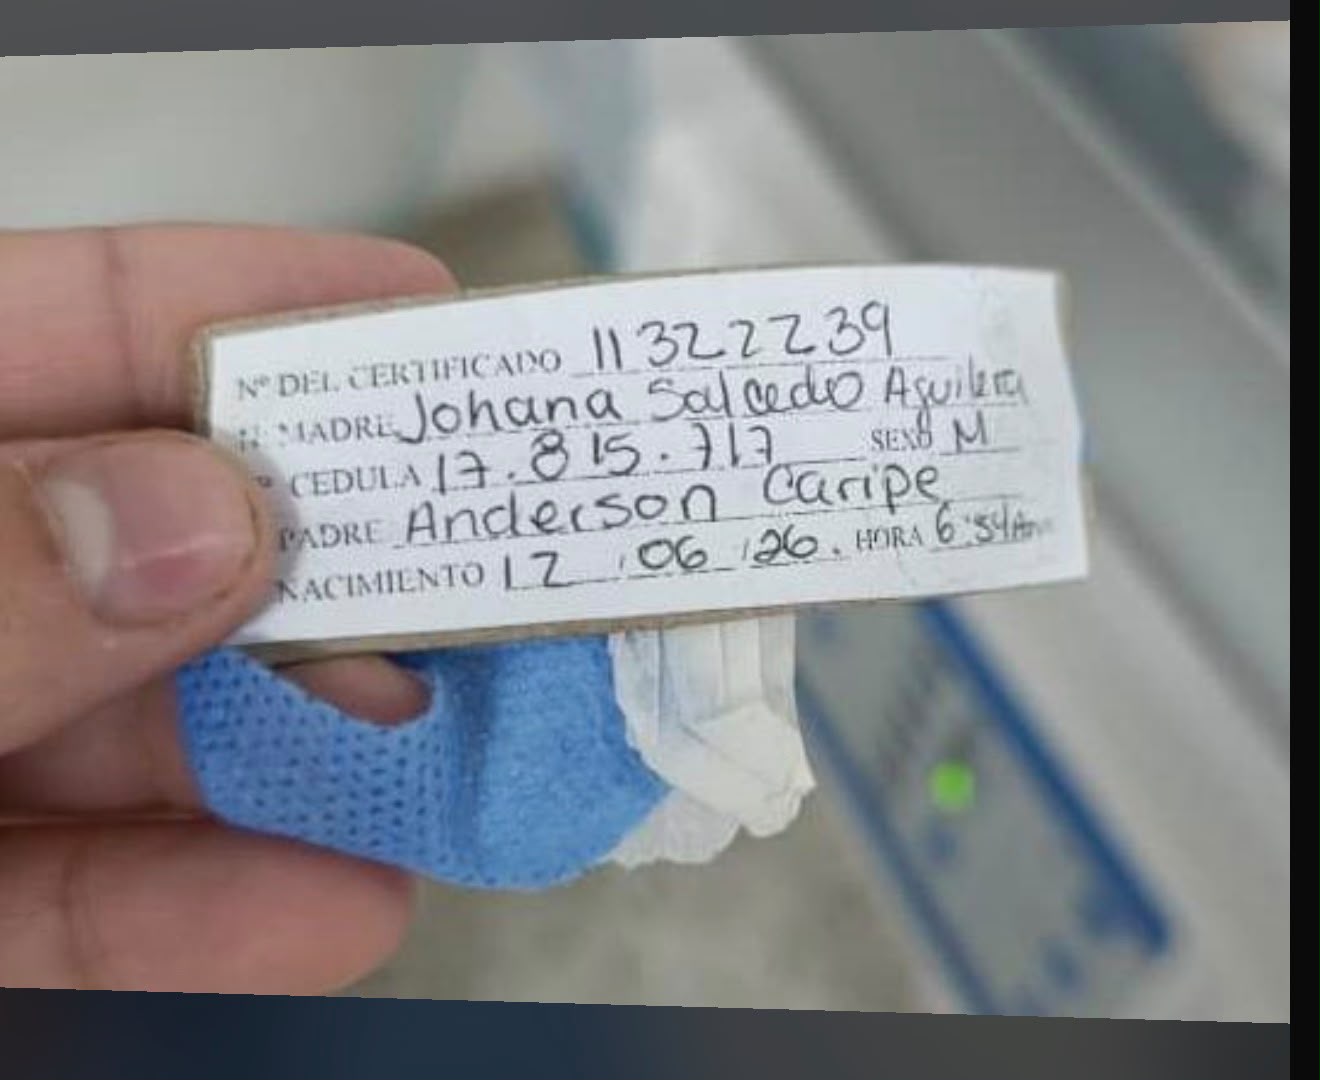 Nº DEL CERTIFICADO 11322239
MADRE Johana Salcedo Aguilera
CEDULA 17.815.717 SEXO M
PADRE Anderson Caripe
NACIMIENTO 12 / 06 / 26. HORA 6:54 Am